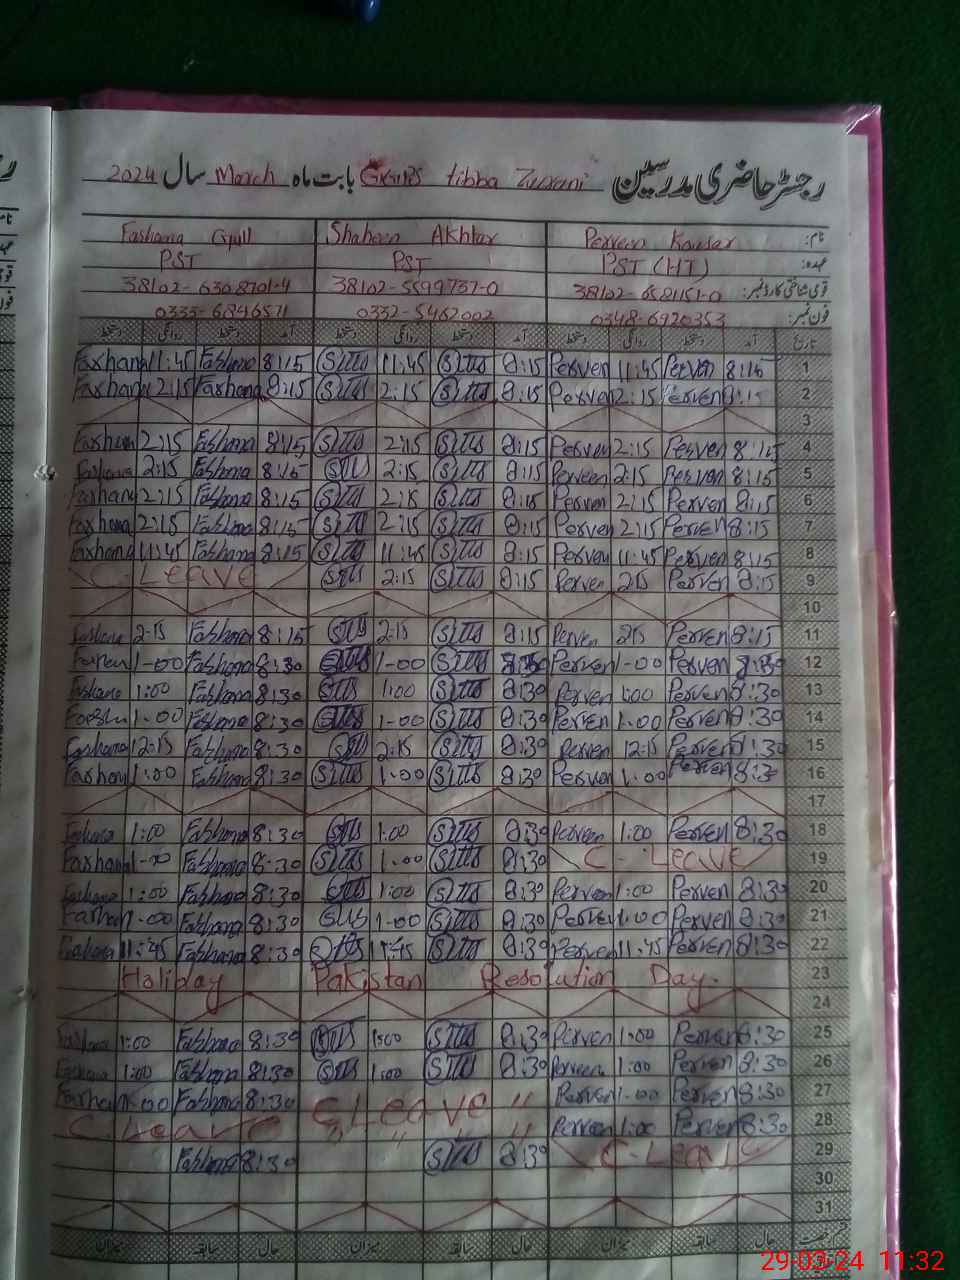 رجسٹر حاضری مدرسین GGPS tibba Zurani بابت ماہ March سال 2024
نام: Perveen Kausar Shaheen Akhtar Farhana Gull
عہدہ: PST (HT) PST PST
قومی شناختی کارڈ نمبر: 38102-6581151-0 38102-5599737-0 38102-6308701-4
فون نمبر: 0348-6920353 0332-5462002 0333-6846571
تاریخ آمد دستخط روانگی دستخط آمد دستخط روانگی دستخط آمد دستخط روانگی دستخط
1 8:15 Perven 11:45 Perven 8:15 11:45 8:15 Farhana 11:45 Farhana
2 8:15 Perven 2:15 Perven 8:15 2:15 8:15 Farhana 2:15 Farhana
3
4 8:15 Perven 2:15 Perven 8:15 2:15 8:15 Farhana 2:15 Farhana
5 8:15 Perven 2:15 Perveen 8:15 2:15 8:15 Farhana 2:15 Farhana
6 8:15 Perven 2:15 Perven 8:15 2:15 8:15 Farhana 2:15 Farhana
7 8:15 Perven 2:15 Perven 8:15 2:15 8:15 Farhana 2:15 Farhana
8 8:15 Perven 11:45 Perven 8:15 11:45 8:15 Farhana 11:45 Farhana
9 8:15 Perven 2:15 Perven 8:15 2:15 C. Leave
10
11 8:15 Perven 2:15 Perven 8:15 2:15 8:15 Farhana 2:15 Farhana
12 8:30 Perven 1-00 Perven 8:30 1-00 8:30 Farhana 1-00
13 8:30 Perven 1:00 Perven 8:30 1:00 8:30 Farhana 1:00 Farhana
14 8:30 Perven 1-00 Perven 8:30 1-00 8:30 Farhana 1-00
15 8:30 Perven 12:15 Perven 8:30 8:30 Farhana 12:15 Farhana
16 8:30 Perven 1:00 Perven 8:30 1:00 8:30 Farhana 1:00 Farhana
17
18 8:30 Perven 1:00 Perven 8:30 1:00 8:30 Farhana 1:00 Farhana
19 C-Leave 8:30 1:00 8:30 Farhana 1-00 Farhana
20 8:30 Perven 1:00 Perven 8:30 1:00 8:30 Farhana 1:00 Farhana
21 8:30 Perven 1:00 Perven 8:30 1-00 8:30 Farhana 1-00 Farhana
22 8:30 Perven 11:45 Perven 8:30 11:45 8:30 Farhana 11:45 Farhana
23 Holiday Pakistan Resolution Day.
24
25 8:30 Perven 1:00 Perven 8:30 1:00 8:30 Farhana 1:00 Farhana
26 8:30 Perven 1:00 Perveen 8:30 1:00 8:30 Farhana 1:00 Farhana
27 8:30 Perven 1-00 Perven C. Leave " 8:30 Farhana 1-00 Farhana
28 8:30 Perven 1:00 Perven " " " " C. Leave
29 C-Leave 8:30 8:30 Farhana
30
31
حال سابقہ میزان حال سابقہ میزان حال سابقہ میزان
29-03-24 11:32